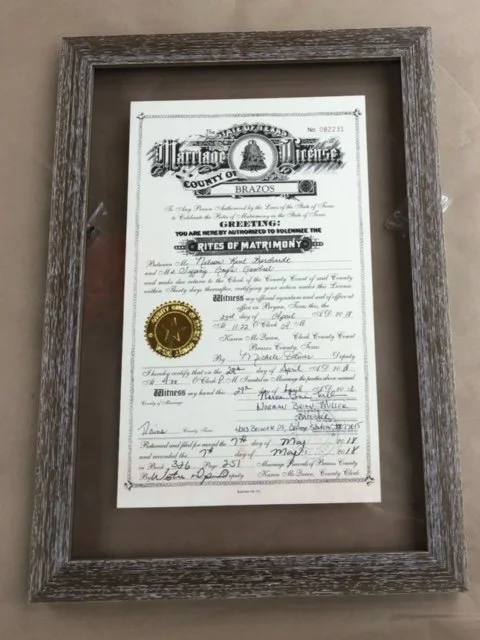 The STATE OF TEXAS
No. 082231
Marriage License
COUNTY OF
BRAZOS
To Any Person Authorized by the Laws of the State of Texas
to Celebrate the Rites of Matrimony in the State of Texas
GREETING:
YOU ARE HEREBY AUTHORIZED TO SOLEMNIZE THE
RITES OF MATRIMONY
Between Mr. Kent
and Ms. Gaye
and make due return to the Clerk of the County Court of said County
within Thirty days thereafter, certifying your action under this License
Witness my official signature and seal of office at
office in Bryan, Texas this, the
day of April A.D. 2018
At 11:22 O'Clock A M.
Karen McQueen, Clerk County Court
Brazos County, Texas
By Michele Deputy
I hereby certify that on the 28th day of April A.D. 2018
At O'Clock P. M. I united in Marriage the parties above named
Witness my hand this 29th day of April A.D. 2018
County of Marriage
NORMAN MILLER
County, Texas
Returned and filed for record the 7th day of May 2018
and recorded the 7th day of May 2018
in Book 326 Page 251 Marriage Records of Brazos County
By Karen McQueen, County Clerk